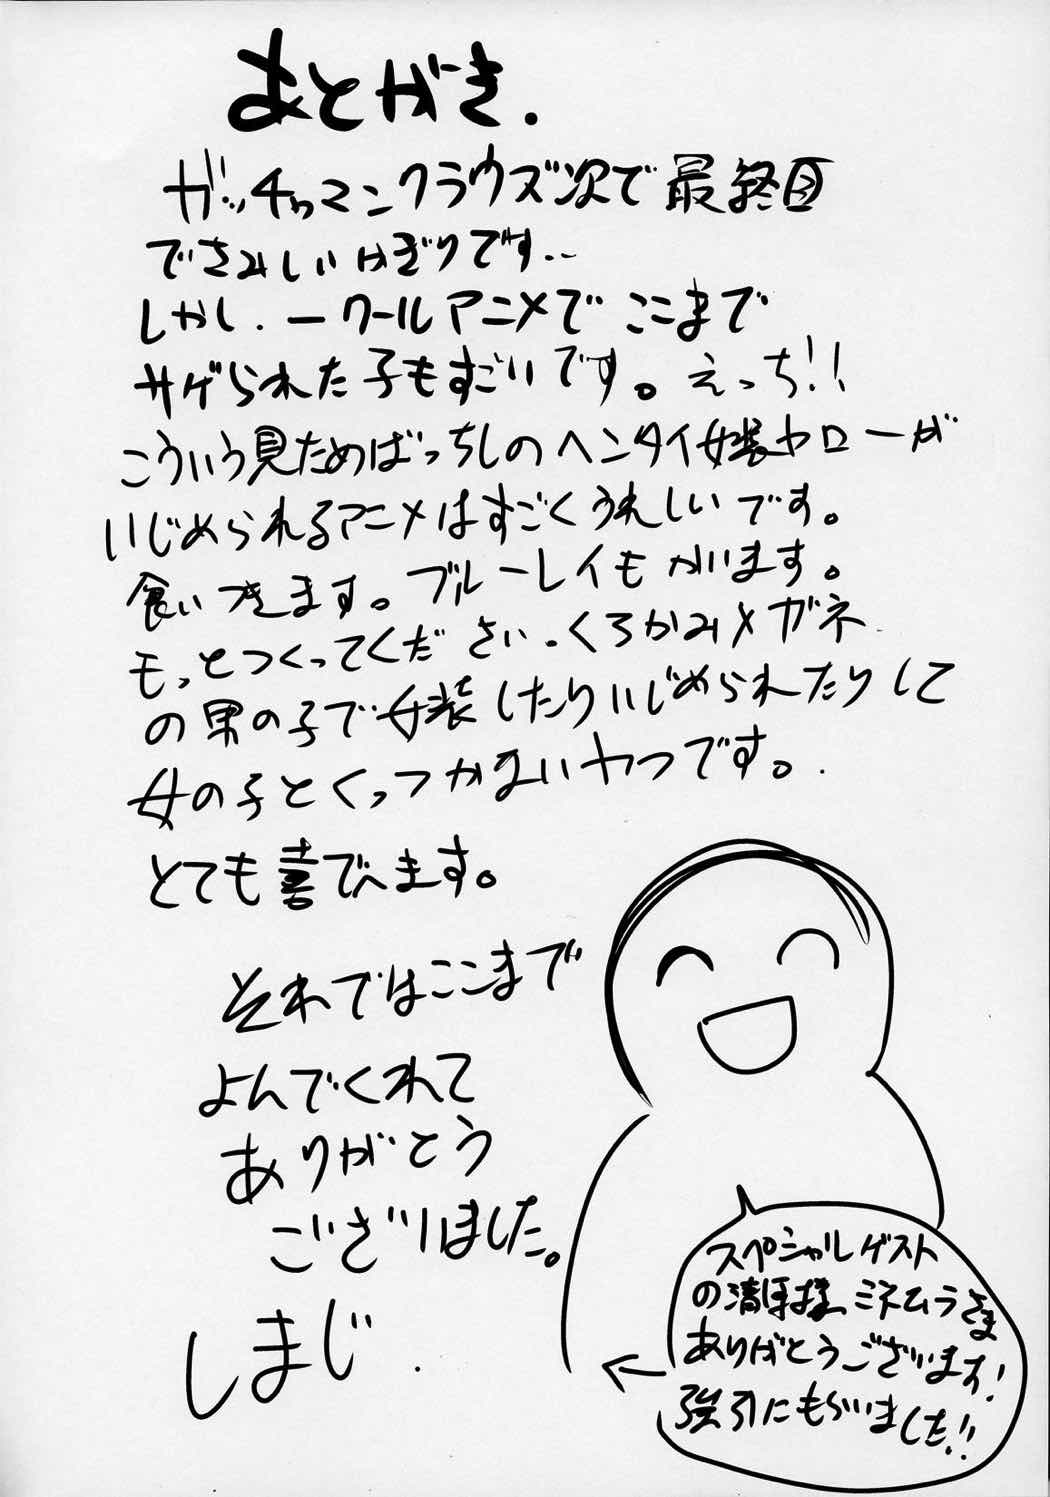 あとがき.
ガッチャマンクラウズ次で最終回
でさみしいかぎりです..
しかし、一クールアニメでここまで
サゲられた子もすごいです。えっち!!
こういう見ためばっちしのヘンタイ女装ヤローが
いじめられるアニメはすごくうれしいです。
食いつきます。ブルーレイもかいます。
もっとつくってください。くろかみメガネ
の男の子で女装したりいじめられたりして
女の子とくっつかないヤつです。
とても喜びます。
それではここまで
よんでくれて
ありがとう
ございました。
しまじ.
スペシャルゲスト
の清様、ミネムラさま
ありがとうございます!
強引にもらいました!!